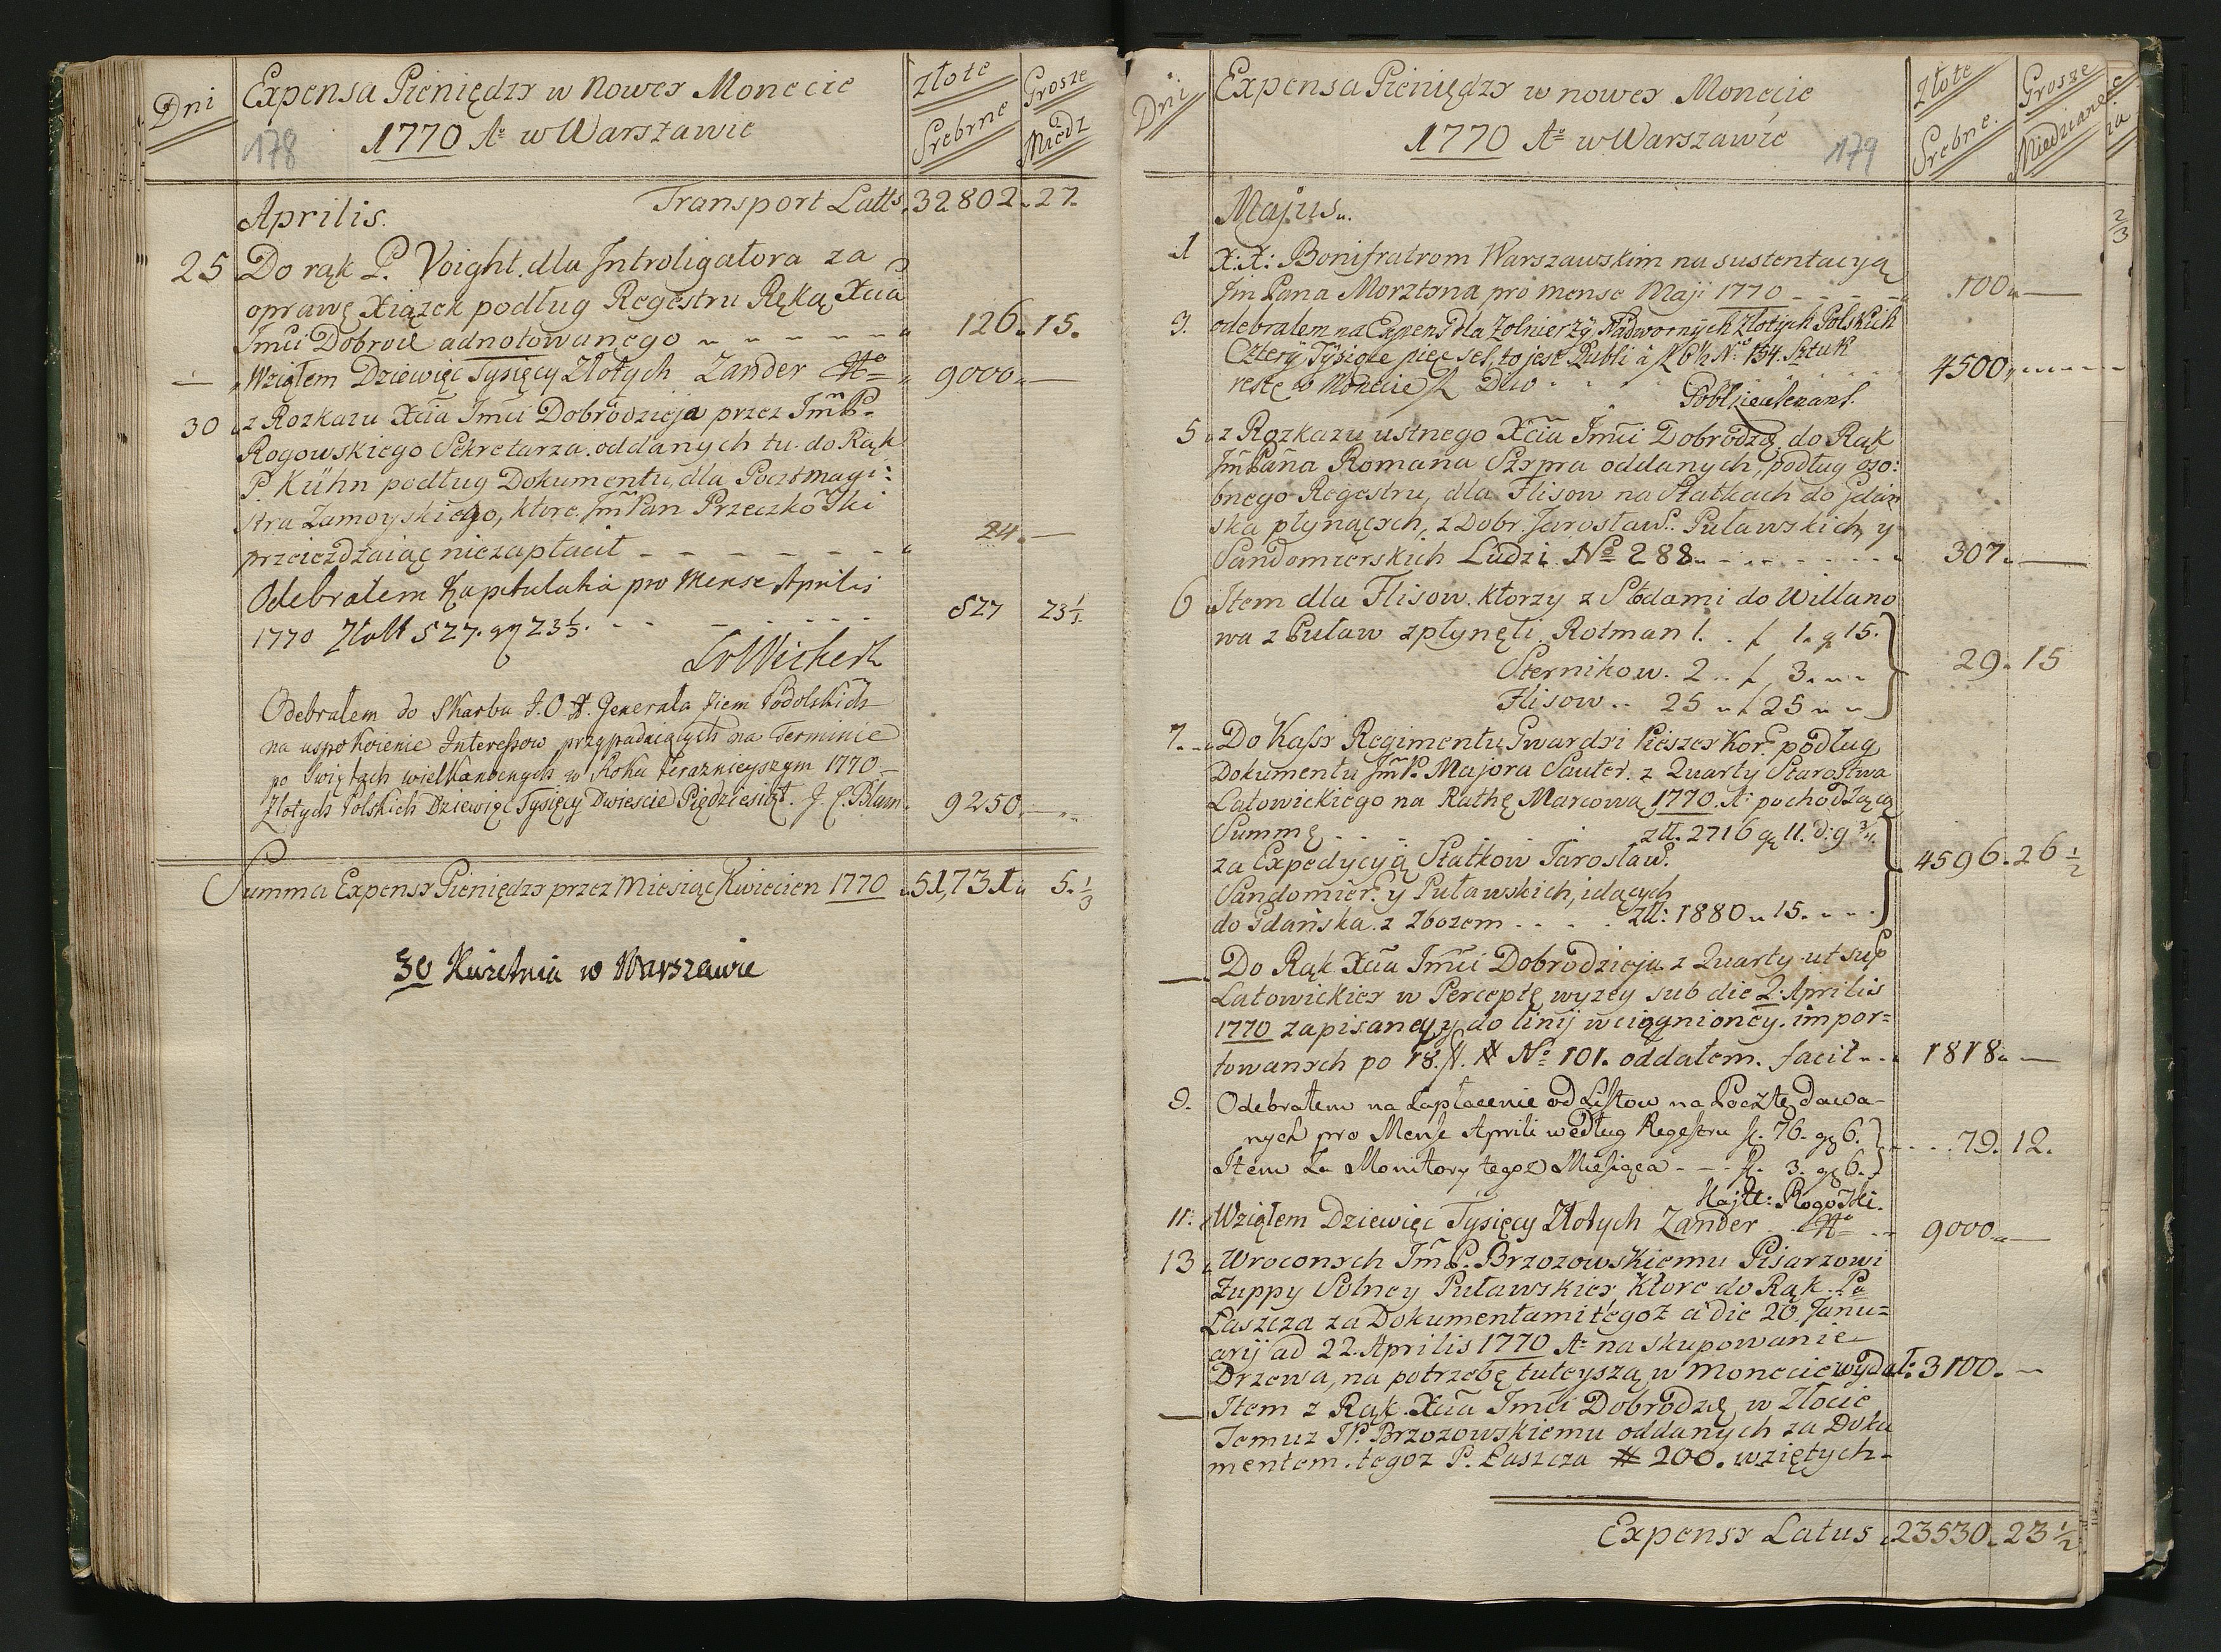 Dni
Expensa Pieniędzy w Nowey Monecie
1770 Aº w Warszawie
178
Złote
Srebrne
Grosze
Miedz
Transport Latts 32802. 27.
Aprilis.
25 Do rąk P. Voight. dla Introligatora za
oprawę Xiązek podług Regestru Ręką Xcia
Imci Dobrod adnotowanego 126. 15.
Wziąłem Dziewięć Tysięcy Złotych Zander 9000
30 z Rozkazu Xcia Imci Dobrodzieja przez ImP.
Rogowskiego Sekretarza. oddanych tu do Rąk
P. Kühn podług Dokumentu, dla Pocztmagi:
stra Zamoyskiego, ktore ImPan Przeczkowski
przeieżdzaiąc niezapłacił 24.
Odebrałem Kapitulatia pro Mense Aprilis
1770 Zlott 527. gr 23 1/3. 527 23 1/3.
Odebrałem do Skarbu J.O.X. Generała Ziem Podolskich
na uspokoienie Interessow przypadaiących na Terminie
po Swiętach wielkanocnych w Roku teraznieyszym 1770
Złotych Polskich Dziewięć Tysięcy Dwiescie Pięćdziesiąt. J. C. Blum 9250
Summa Expensy Pieniędzy przez Miesiąc Kwiecien 1770 51,731 5. 1/3
30 Kwietnia w Warszawie
Dni
Expensa Pieniędzy w nowey Monecie
1770 Aº w Warszawie
179
Złote
Srebrne.
Grosze
Miedziane
Majus.
1 X.X: Bonifratrom Warszawskim na sustentacyą
Jm Pana Morztyna pro mense Maji 1770 100
3. odebrałem na Expens dla Zołnierzy Nadwornych Złotych Polskich
Cztery Tysiące pięc set, to jest Rubli à fl 6½ No 154. Sztuk
resztę w Monecie 4500
5 z Rozkazu ustnego Xcia Imci Dobrodzie do Rąk
JmPana Romana Szypra oddanych, podług oso:
bnego Regestru, dla Flisow na Statkach do Gdań
ska płynących, z Dobr. Jarosław. Puławskich, y
Sandomierskich Ludzi No 288 307
6 Item dla Flisow. ktorzy z Słodami do Willano
wa z Puław zpłynęli. Rotman 1. f 1. g 15.
Sternikow. 2 f 3. 29. 15
Flisow 25 f 25
7. Do Kassy Regimentu Gwardyi Pieszey Kor. podług
Dokumentu JmP. Majora Sauter. z Quarty Starostwa
Latowickiego na Rathę Marcową 1770. Aº pochodzącą
Summę zll. 2716 gr 11. d: 9 3/4
za Expedycyą Statkow Jarosław. 4596. 26 1/2
Sandomier: y Puławskich, idących
do Gdańska z Zbozem zll: 1880 15.
Do Rąk Xcia Imci Dobrodzieja z Quarty ut sup
Latowickiey w Perceptę wyzey sub die 2. Aprilis
1770 zapisaney y do linij wciągnioney. impor=
towanych po 18. fl. # No 101. oddałem. facit 1818
9. Odebrałem na Zapłacenie od Listow na Pocztę dawa-
nych pro Mense Aprili według Regestru fl. 76. gr 6. 79. 12.
Item Za Monitory tegoz Miesiąca fl. 3. gr 6.
Rogowski.
11. Wziąłem Dziewięc Tysięcy Złotych Zander 9000
13 Wroconych ImP. Brzozowskiemu Pisarzowi
Zuppy Solney Puławskiey. ktore do Rąk Pa
Łaszcza za Dokumentami tegoż a die 20. Janu=
arij ad 22. Aprilis 1770 Aº na skupowanie
Drzewa, na potrzebę tuteyszą w Monecie wydał: 3100.
Item z Rąk Xcia Imci Dobrodzie w Złocie
Temuz JP. Brzozowskiemu oddanych za Doku
mentem. tegoz P. Łaszcza # 200. wziętych
Expensy Latus 23530. 23 1/2